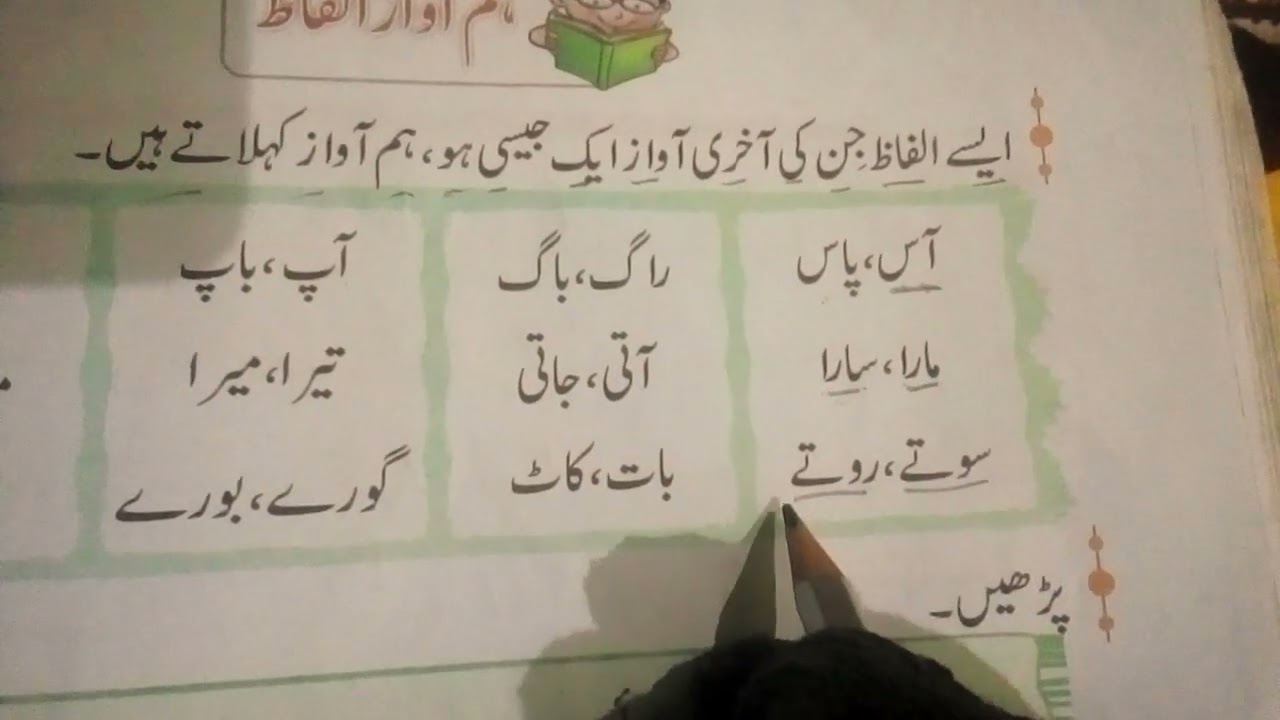 ہم آواز الفاظ
ایسے الفاظ جن کی آخری آواز ایک جیسی ہو، ہم آواز کہلاتے ہیں۔
آس، پاس
مارا، سارا
سوتے، روتے
راگ، باگ
آتی، جاتی
بات، کاٹ
آپ، باپ
تیرا، میرا
گورے، بورے
پڑھیں۔